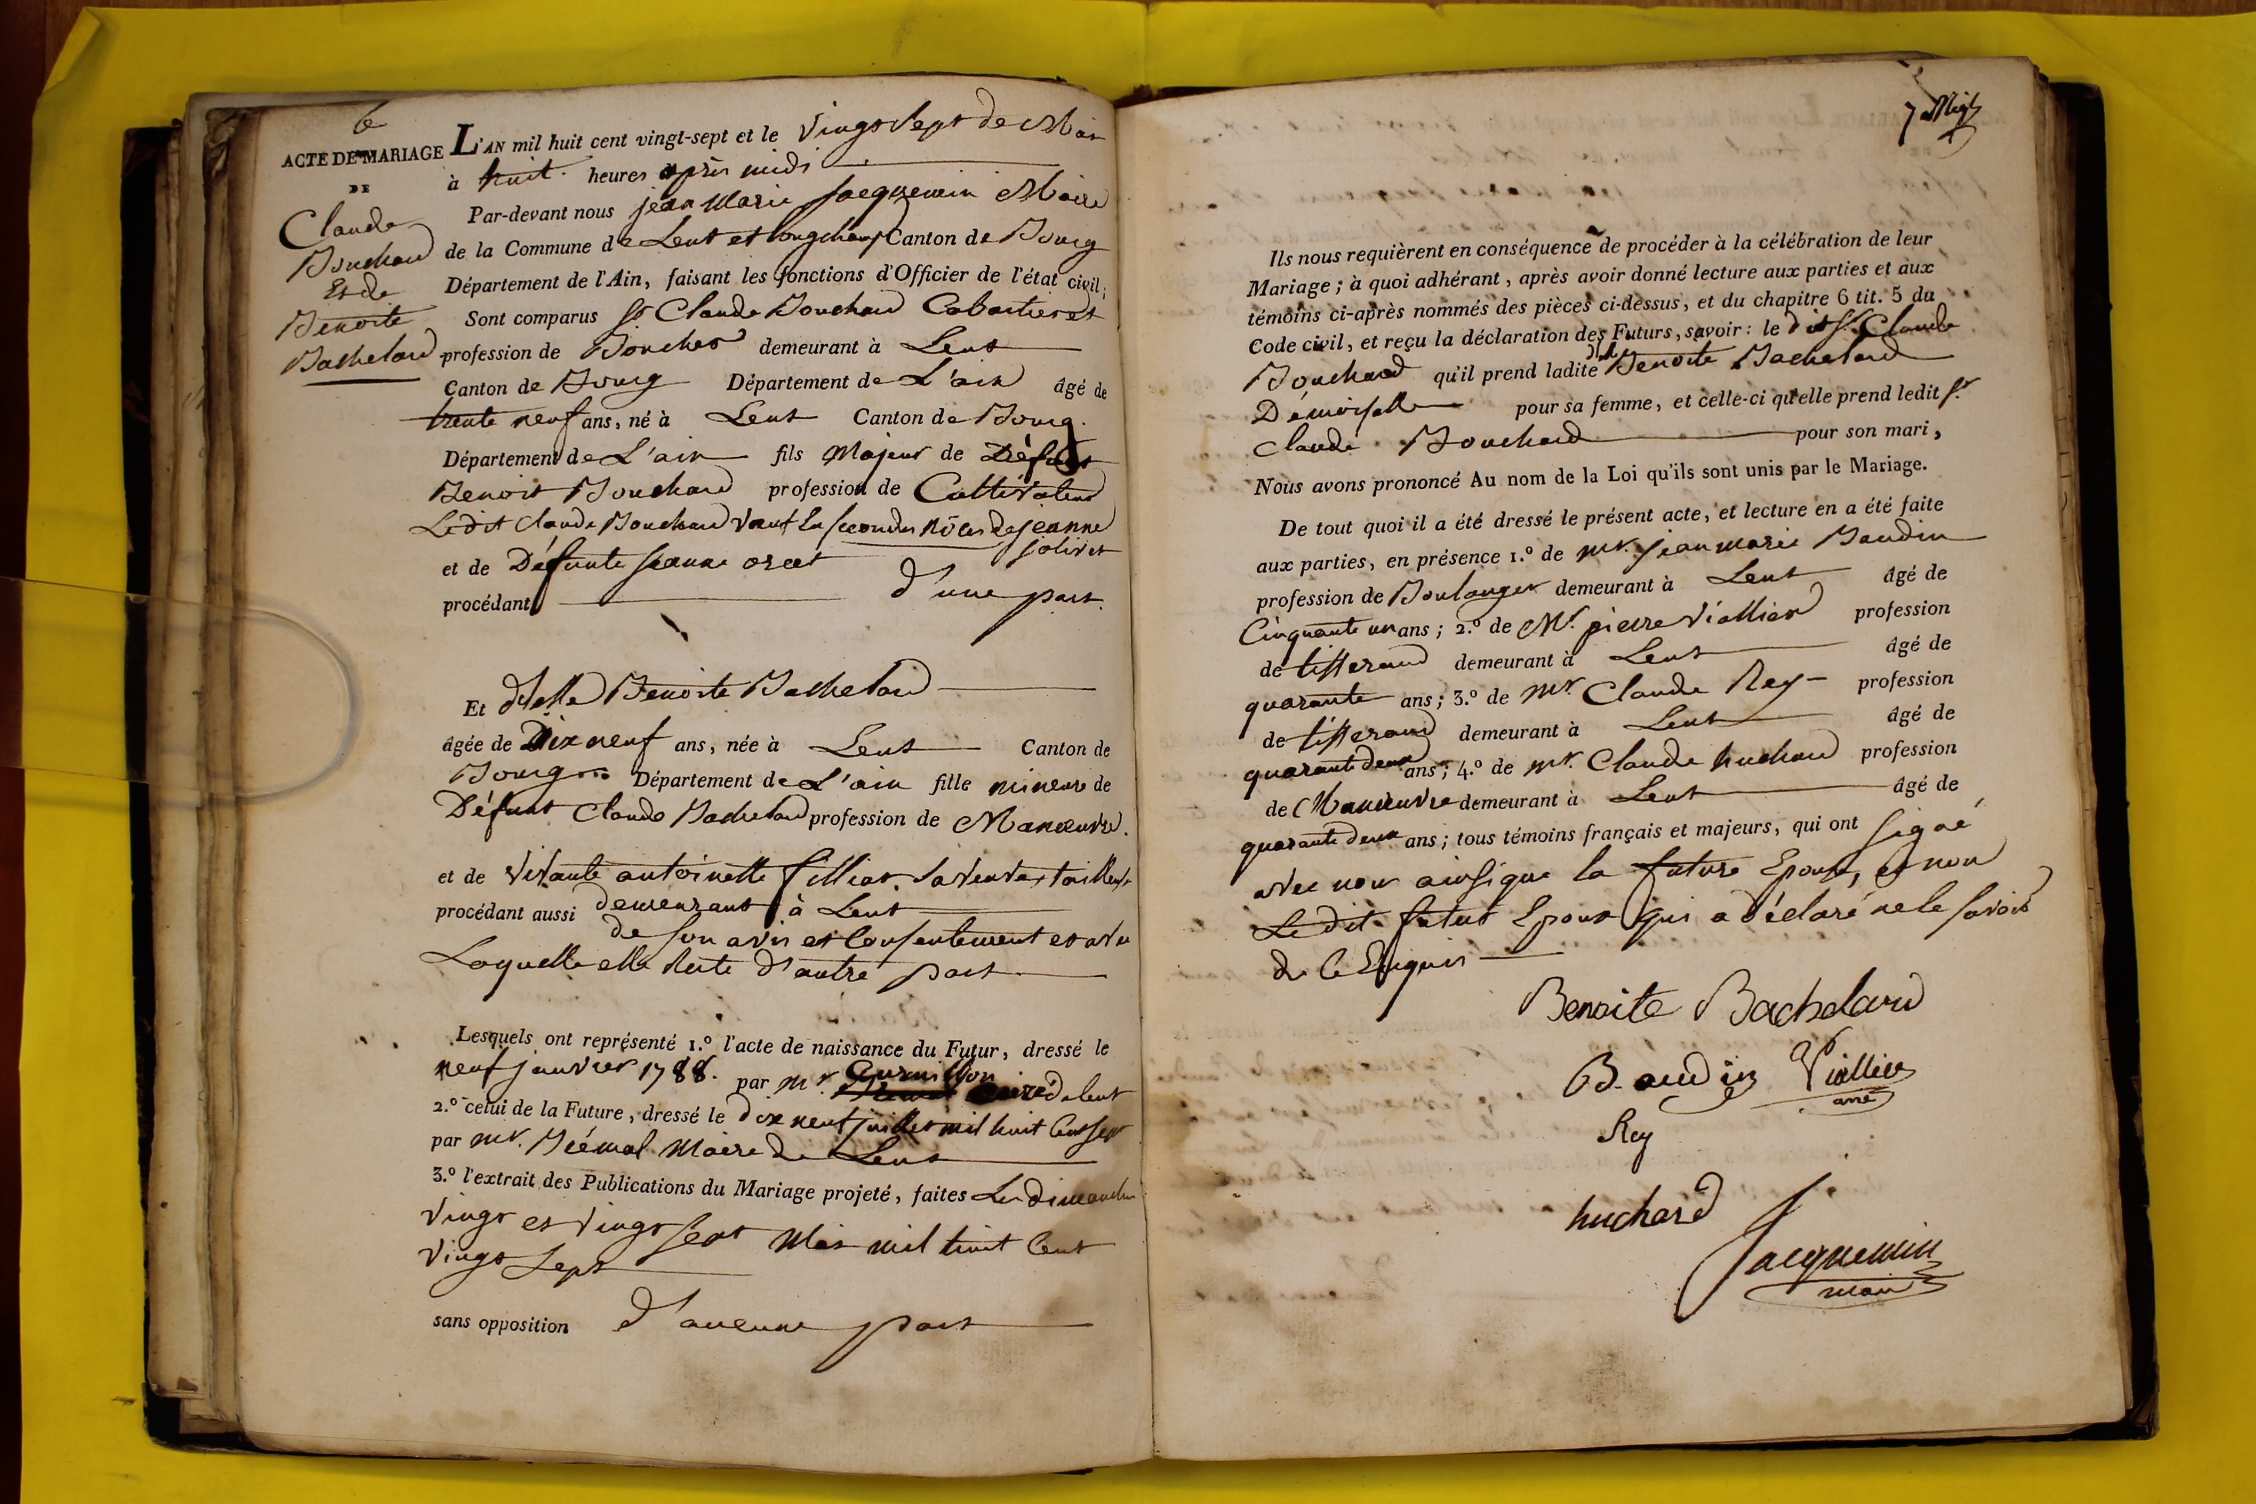 6
ACTE DE MARIAGE
DE
Claude
Bouchard
Et de
Benoite
Bachelard
L'AN mil huit cent vingt-sept et le vingt sept de Mai
à huit heures après midi
Par-devant nous jean Marie Jacquemin Maire
de la Commune de Lent et longchamp Canton de Bourg
Département de l'Ain, faisant les fonctions d'Officier de l'état civil;
Sont comparus Sr Claude Bouchard Cabartier et
profession de Boucher demeurant à Lent
Canton de Bourg Département de L'ain âgé de
trente neuf ans, né à Lent Canton de Bourg.
Département de L'ain fils Majeur de Défunt
Benoit Bouchard profession de Cultivateur
Ledit Claude Bouchard veuf En secondes nôces de jeanne
jolivet
et de Défunte jeanne
procédant d'une part.
Et dlle Benoite Bachelard
âgée de Dix neuf ans, née à Lent Canton de
Bourg Département de L'ain fille mineure de
Défunt Claude Bachelard profession de Manœuvre.
et de vivante antoinette filliat sa veuve tailleuse
procédant aussi demeurant à Lent
de son avis et Consentement et avec
Laquelle elle Reste d'autre part
Lesquels ont représenté 1.º l'acte de naissance du Futur, dressé le
neuf janvier 1788. par mr. Curé de lent
2.º celui de la Future, dressé le dix neuf juillet mil huit Cent sept
par mr. Maire de Lent
3.º l'extrait des Publications du Mariage projeté, faites Les dimanches
vingt et vingt sept Mai mil huit Cent
vingt sept
sans opposition d'aucune part
7
Ils nous requièrent en conséquence de procéder à la célébration de leur
Mariage; à quoi adhérant, après avoir donné lecture aux parties et aux
témoins ci-après nommés des pièces ci-dessus, et du chapitre 6 tit. 5 du
Code civil, et reçu la déclaration des Futurs, savoir: le dit Sr. Claude
Bouchard qu'il prend ladite dlle Benoite Bachelard
Démoiselle pour sa femme, et celle-ci qu'elle prend ledit Sr.
Claude Bouchard pour son mari,
Nous avons prononcé Au nom de la Loi qu'ils sont unis par le Mariage.
De tout quoi il a été dressé le présent acte, et lecture en a été faite
aux parties, en présence 1.º de mr. jean marie Baudin
profession de Boulanger demeurant à Lent âgé de
Cinquante un ans; 2.º de Mr. pierre Viallier profession
de tisserand demeurant à Lent âgé de
quarante ans; 3.º de mr. Claude Rey profession
de tisserand demeurant à Lent âgé de
quarante deux ans; 4.º de mr. Claude huchard profession
de Manœuvre demeurant à Lent âgé de
quarante deux ans; tous témoins français et majeurs, qui ont signé
avec nous ainsi que la future Epouse, et non
Le dit futur Epoux qui a déclaré ne le savoir
de Ce Enquis
Benoite Bachelard
Baudin Viallier
ainé
Rey
huchard
Jacquemin
maire